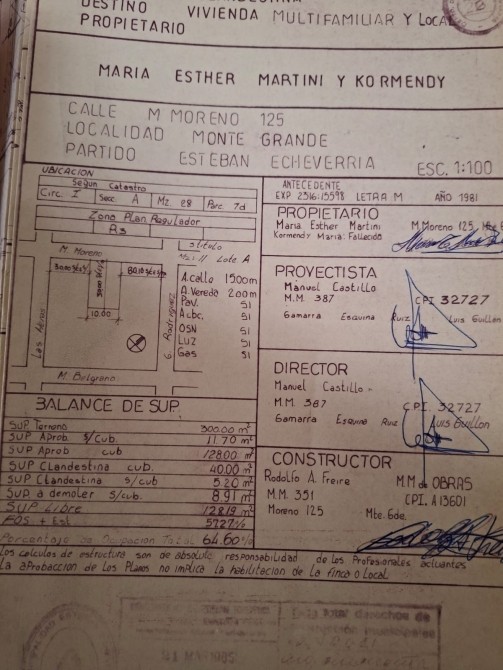 DESTINO VIVIENDA MULTIFAMILIAR Y Local
PROPIETARIO
MARIA ESTHER MARTINI Y KORMENDY
CALLE M MORENO 125
LOCALIDAD MONTE GRANDE
PARTIDO ESTEBAN ECHEVERRIA ESC. 1:100
UBICACION
Segun Catastro
Circ. I Secc. A Mz. 28 Parc 7d
Zona Plan Regulador
R3
M. Moreno
Lote A
10.00
Las Heras
G. Rodriguez
M. Belgrano
A.calle 1500m
A.Vereda 200m
Pav. SI
A.cbc. SI
OSN SI
LUZ SI
Gas SI
BALANCE DE SUP.
SUP Terreno 300.00 m²
SUP Aprob. s/cub. 11.70 m²
SUP Aprob cub 128.00 m²
SUP Clandestina cub. 40.00 m²
SUP Clandestina s/cub 5.20 m²
SUP a demoler s/cub. 8.91 m²
SUP Libre 128.19 m²
FOS + Est 57.27%
Porcentaje de Ocupacion Total 64.60%
ANTECEDENTE
EXP 2316:15598 LETRA M AÑO 1981
PROPIETARIO
Maria Esther Martini M Moreno 125
Kormendy Maria: Fallecida
PROYECTISTA
Manuel Castillo
M.M. 387 CPI 32727
Gamarra Esquina Ruiz Luis Guillon
DIRECTOR
Manuel Castillo -
M.M. 387 CPI. 32727
Gamarra Esquina Ruiz Luis Guillon
CONSTRUCTOR
Rodolfo A. Freire M M de OBRAS
M.M. 351 CPI. A13601
Moreno 125 Mte. Gde.
Los calculos de estructura son de absoluta responsabilidad de los Profesionales actuantes
La aprobaccion de los Planos no implica la habilitacion de la finca o local